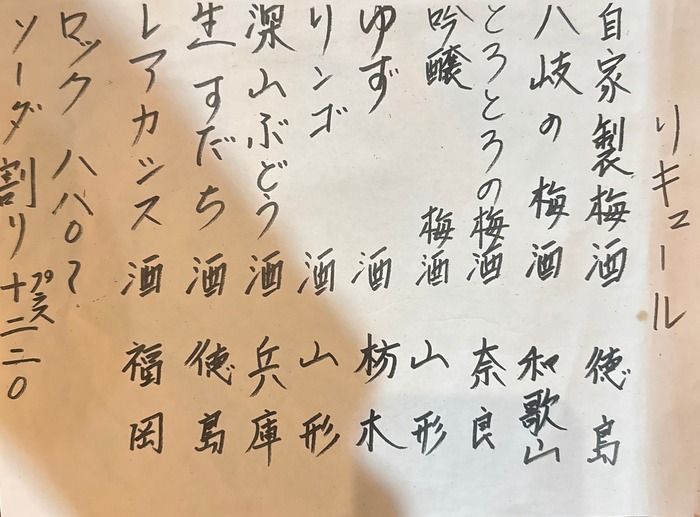 リキュール
自家製梅酒 徳島
八岐の梅酒 和歌山
とろとろの梅酒 奈良
吟醸梅酒 山形
ゆず酒 栃木
リンゴ酒 山形
深山ぶどう酒 兵庫
生すだち酒 徳島
レアカシス酒 福岡
ロック 八八〇〜
ソーダ割り プラス十二二〇